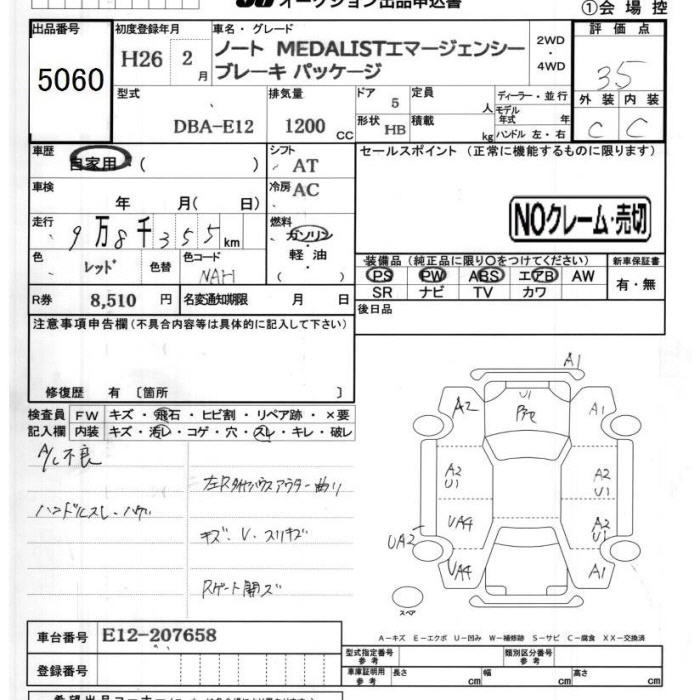 オークション出品申込書
①会場控
出品番号
5060
初度登録年月
H26 2月
車名・グレード
ノート MEDALISTエマージェンシー
ブレーキ パッケージ
2WD
・
4WD
評価点
3.5
外装 内装
C C
型式
DBA-E12
排気量
1200 CC
ドア 5
形状 HB
定員 人
積載 kg
ディーラー・並行
モデル年式 年
ハンドル 左・右
車歴
自家用・( )
シフト
AT
セールスポイント (正常に機能するものに限ります)
車検
年 月( 日)
冷房
AC
NOクレーム・売切
走行
9万8千355km
燃料
ガソリン
軽油
( )
色
レッド
色替
色コード
NAH
装備品(純正品に限り○をつけてください)
PS PW ABS エアB AW
SR ナビ TV カワ
新車保証書
有・無
R券 8,510 円
名変通知期限 月 日
後日品
注意事項申告欄(不具合内容等は具体的に記入して下さい)
修復歴 有 〔箇所 〕
検査員
記入欄
FW キズ・飛石・ヒビ割・リペア跡・×要
内装 キズ・汚レ・コゲ・穴・スレ・キレ・破レ
A/C不良
ハンドルスレ・ハゲ
左Rタイヤハウスアウター曲り
キズ・U・スリキズ
Rゲート開ズ
A1
U1
A2
A1
A2
U1
A2
U1
UA4
A2
U1
UA2
UA4
A1
スペア
A-キズ E-エクボ U-凹み W-補修跡 S-サビ C-腐食 XX-交換済
車台番号 E12-207658
登録番号
型式指定番号
参考
類別区分番号
参考
車庫証明用
参考
長さ cm
幅 cm
高さ cm